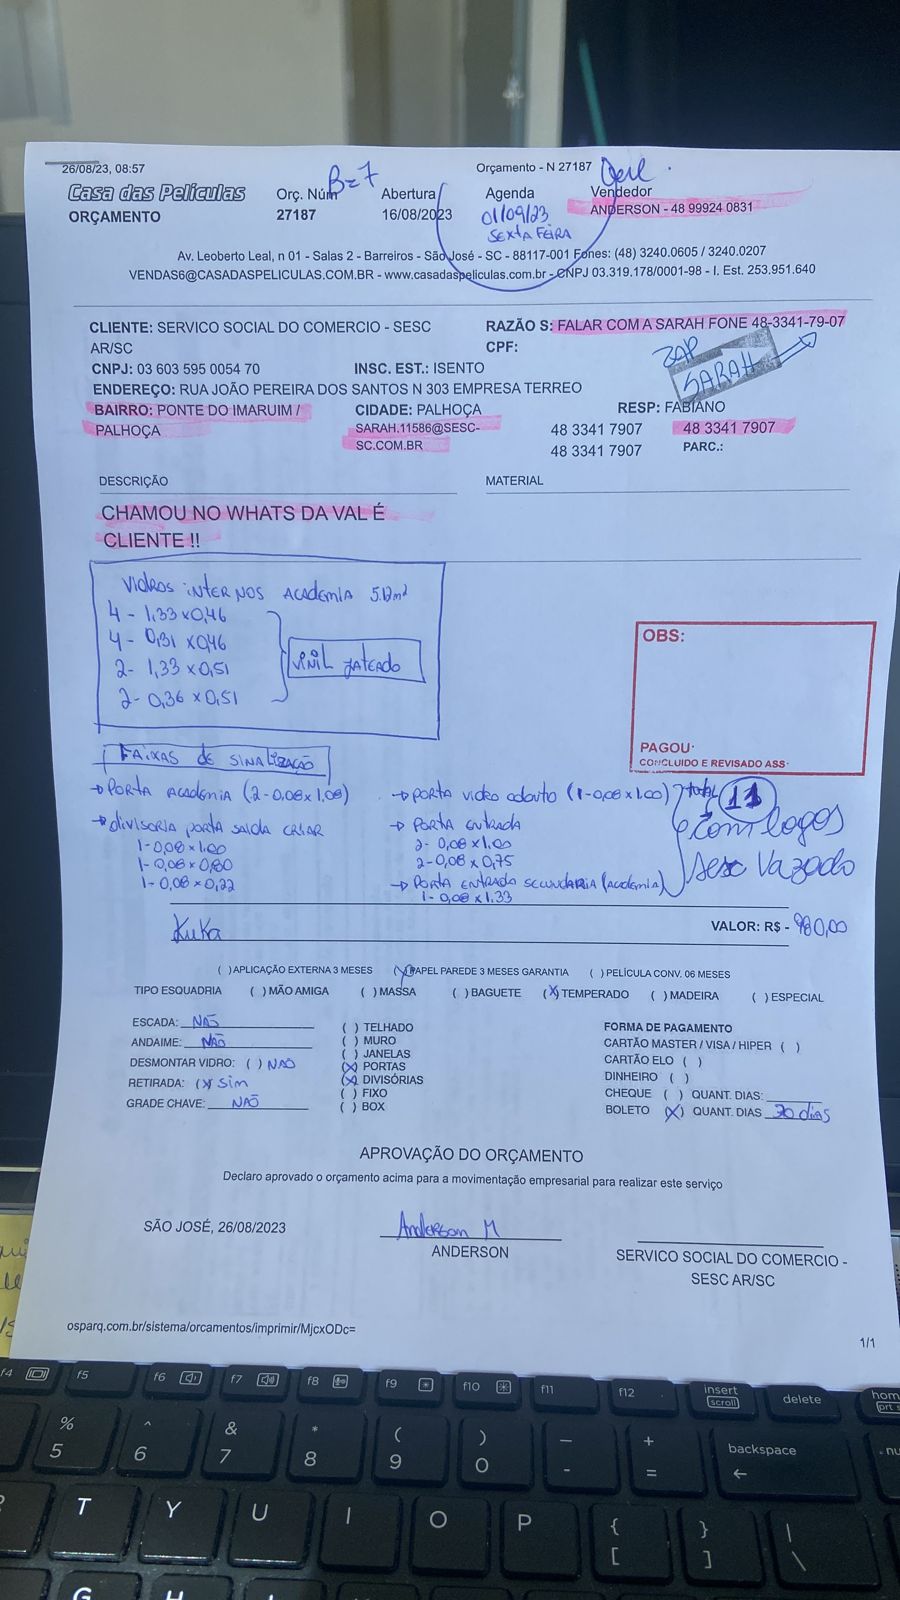 26/08/23, 08:57
Orçamento - N 27187
B=7
Casa das Películas
Orç. Núm
Abertura
Agenda
Vendedor
ORÇAMENTO
27187
16/08/2023
01/09/23
SEXTA FEIRA
ANDERSON - 48 99924 0831
Av. Leoberto Leal, n 01 - Salas 2 - Barreiros - São José - SC - 88117-001 Fones: (48) 3240.0605 / 3240.0207
VENDAS6@CASADASPELICULAS.COM.BR - www.casadaspeliculas.com.br - CNPJ 03.319.178/0001-98 - I. Est. 253.951.640
CLIENTE: SERVICO SOCIAL DO COMERCIO - SESC
AR/SC
RAZÃO S: FALAR COM A SARAH FONE 48-3341-79-07
CPF:
ZAP
SARAH
CNPJ: 03 603 595 0054 70
INSC. EST.: ISENTO
ENDEREÇO: RUA JOÃO PEREIRA DOS SANTOS N 303 EMPRESA TERREO
BAIRRO: PONTE DO IMARUIM /
PALHOÇA
CIDADE: PALHOÇA
RESP: FABIANO
SARAH.11586@SESC-
SC.COM.BR
48 3341 7907
48 3341 7907
48 3341 7907
PARC.:
DESCRIÇÃO
MATERIAL
CHAMOU NO WHATS DA VAL É
CLIENTE !!
VIDROS INTERNOS ACADEMIA 5.12m²
4 - 1,33 x 0,46
4 - 0,31 x 0,46
2 - 1,33 x 0,51
2 - 0,36 x 0,51
VINIL JATEADO
OBS:
PAGOU:
CONCLUIDO E REVISADO ASS:
FAIXAS DE SINALIZAÇÃO
→ PORTA ACADEMIA (2 - 0,08 x 1,08)
→ DIVISORIA PORTA SAIDA CRIAR
1 - 0,08 x 1,00
1 - 0,08 x 0,80
1 - 0,08 x 0,22
→ PORTA VIDRO ODONTO (1 - 0,08 x 1,00)
→ PORTA ENTRADA
2 - 0,08 x 1,00
2 - 0,08 x 0,75
→ PORTA ENTRADA SECUNDARIA (ACADEMIA)
1 - 0,08 x 1.33
total 11
com logos
sesc Vazado
KuKa
VALOR: R$ - 980,00
( ) APLICAÇÃO EXTERNA 3 MESES (X) PAPEL PAREDE 3 MESES GARANTIA ( ) PELÍCULA CONV. 06 MESES
TIPO ESQUADRIA ( ) MÃO AMIGA ( ) MASSA ( ) BAGUETE (X) TEMPERADO ( ) MADEIRA ( ) ESPECIAL
ESCADA: NÃO
ANDAIME: NÃO
DESMONTAR VIDRO: ( ) NÃO
RETIRADA: (X) Sim
GRADE CHAVE: NÃO
( ) TELHADO
( ) MURO
( ) JANELAS
(X) PORTAS
(X) DIVISÓRIAS
( ) FIXO
( ) BOX
FORMA DE PAGAMENTO
CARTÃO MASTER / VISA / HIPER ( )
CARTÃO ELO ( )
DINHEIRO ( )
CHEQUE ( ) QUANT. DIAS:
BOLETO (X) QUANT. DIAS 30 dias
APROVAÇÃO DO ORÇAMENTO
Declaro aprovado o orçamento acima para a movimentação empresarial para realizar este serviço
SÃO JOSÉ, 26/08/2023
Anderson M
ANDERSON
SERVICO SOCIAL DO COMERCIO -
SESC AR/SC
osparq.com.br/sistema/orcamentos/imprimir/MjcxODc=
1/1
f4 f5 f6 f7 f8 f9 f10 f11 f12 insert delete
scroll
% ^ & * ( ) _ + backspace
5 6 7 8 9 0 - =
T Y U I O P { } |
[ ] \